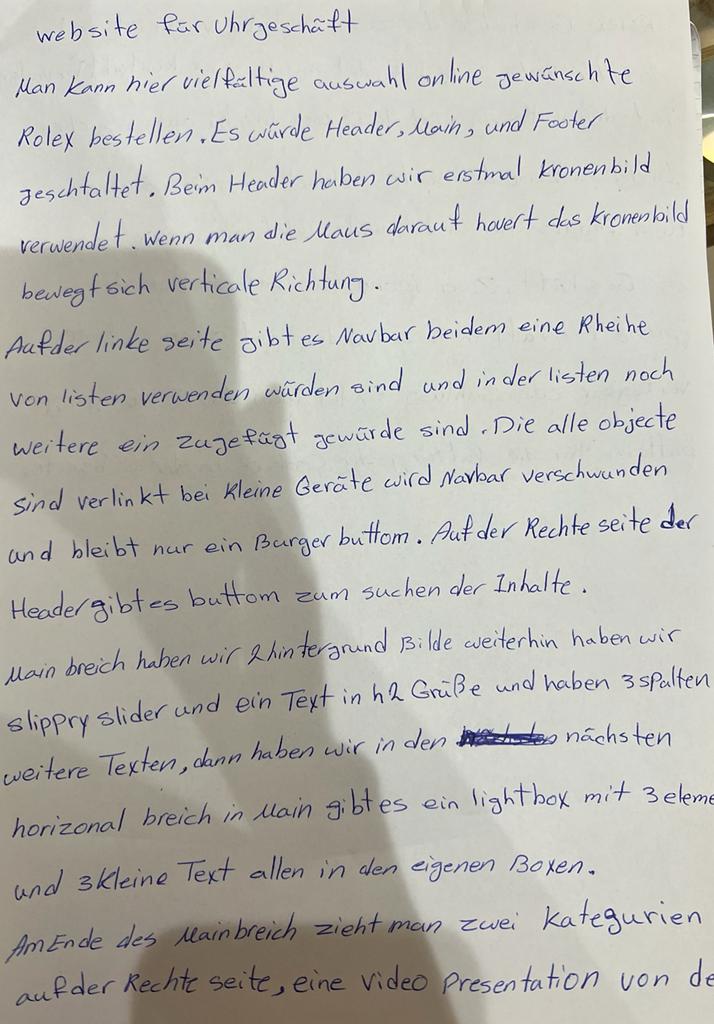 website für Uhrgeschäft
Man kann hier vielfältige auswahl online gewünschte
Rolex bestellen. Es würde Header, Main, und Footer
geschtaltet. Beim Header haben wir erstmal kronenbild
verwendet. Wenn man die Maus darauf hovert das kronenbild
bewegt sich verticale Richtung.
Auf der linke seite gibt es Navbar beidem eine Rheihe
von listen verwenden würden sind und in der listen noch
weitere ein zugefügt gewürde sind. Die alle objecte
sind verlinkt bei kleine Geräte wird Navbar verschwunden
und bleibt nur ein Burger buttom. Auf der Rechte seite der
Header gibt es buttom zum suchen der Inhalte.
Main breich haben wir 2 hintergrund Bilde weiterhin haben wir
slippry slider und ein Text in h2 Größe und haben 3 spalten
weitere Texten, dann haben wir in den nächsten
horizonal breich in Main gibt es ein lightbox mit 3 eleme
und 3 kleine Text allen in den eigenen Boxen.
Am Ende des Mainbreich zieht man zwei kategurien
auf der Rechte seite, eine video Presentation von de